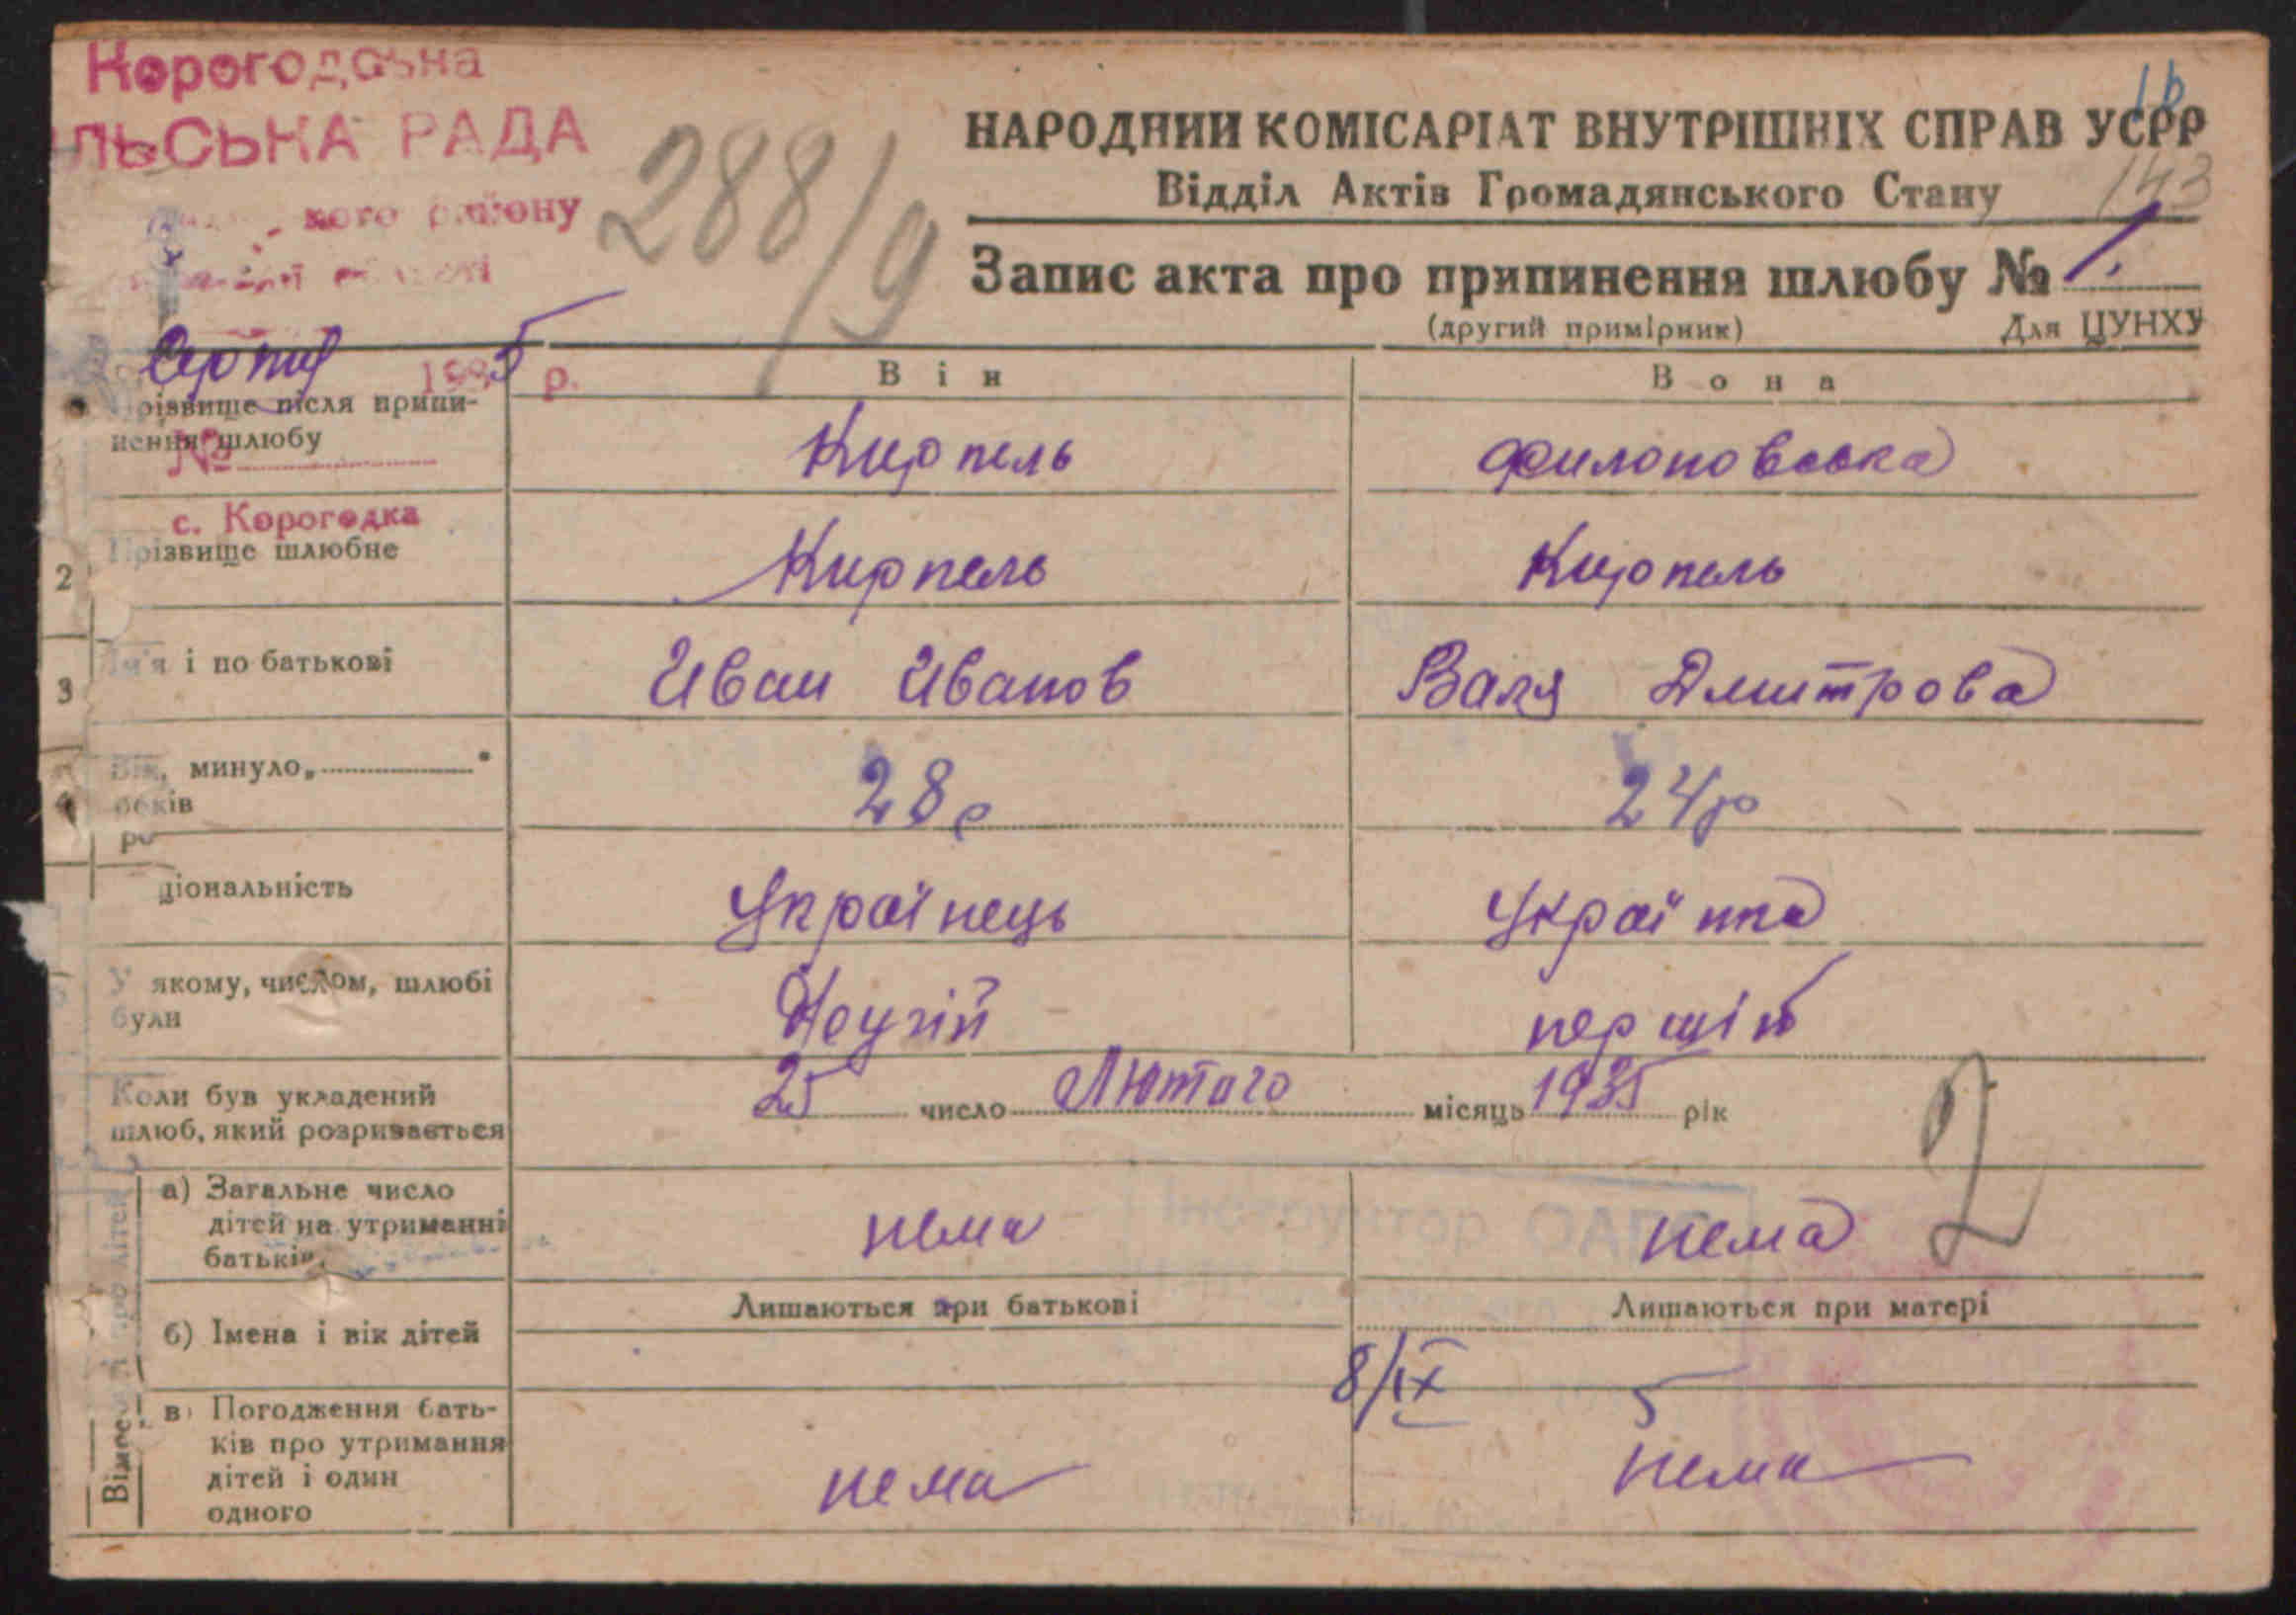 Корогодська
ЛЬСЬКА РАДА
кого району
288/9
НАРОДНИЙ КОМІСАРІАТ ВНУТРІШНІХ СПРАВ УСРР
Відділ Актів Громадянського Стану
143
Запис акта про припинення шлюбу № 1.
(другий примірник) Для ЦУНХУ
1935 р.
Він Вона
різвище після припи-
нення шлюбу
№
Кирпель Филоновська
с. Корогодка
2 Прізвище шлюбне Кирпель Кирпель
3 Ім'я і по батькові Иван Иванов Валя Дмитрова
4 Вік, минуло „ "
років
28 р 24 р
ціональність Українець Українка
У якому, числом, шлюбі
були
Другій першій
Коли був укладений
шлюб, який розривається
25 число Лютого місяць 1935 рік
2
а) Загальне число
дітей на утриманні
батьків
нема нема
б) Імена і вік дітей
Лишаються при батькові Лишаються при матері
8/IX
5
в) Погодження бать-
ків про утримання
дітей і один
одного
нема нема